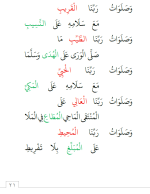 وَصَلَوَاتُ رَبِّنَا الْقَرِيبِ
مَعَ سَلَامِهِ عَلَى النَّسِيبِ
وَصَلَوَاتُ رَبِّنَا الطَّيِّبِ مَا
صَلَّى الْوَرَى عَلَى الْهُدَى وَسَلَّمَا
وَصَلَوَاتُ رَبِّنَا الْحَيِّ
مَعَ سَلَامِهِ عَلَى الْمَكِّيِّ
وَصَلَوَاتُ رَبِّنَا الْعَالِي عَلَى
الْمُنْتَقَى الْمَاحِي الْمُطَاعِ فِي الْمَلَا
وَصَلَوَاتُ رَبِّنَا الْمُحِيطِ
عَلَى الْمُبَلِّغِ بِلَا تَفْرِيطِ